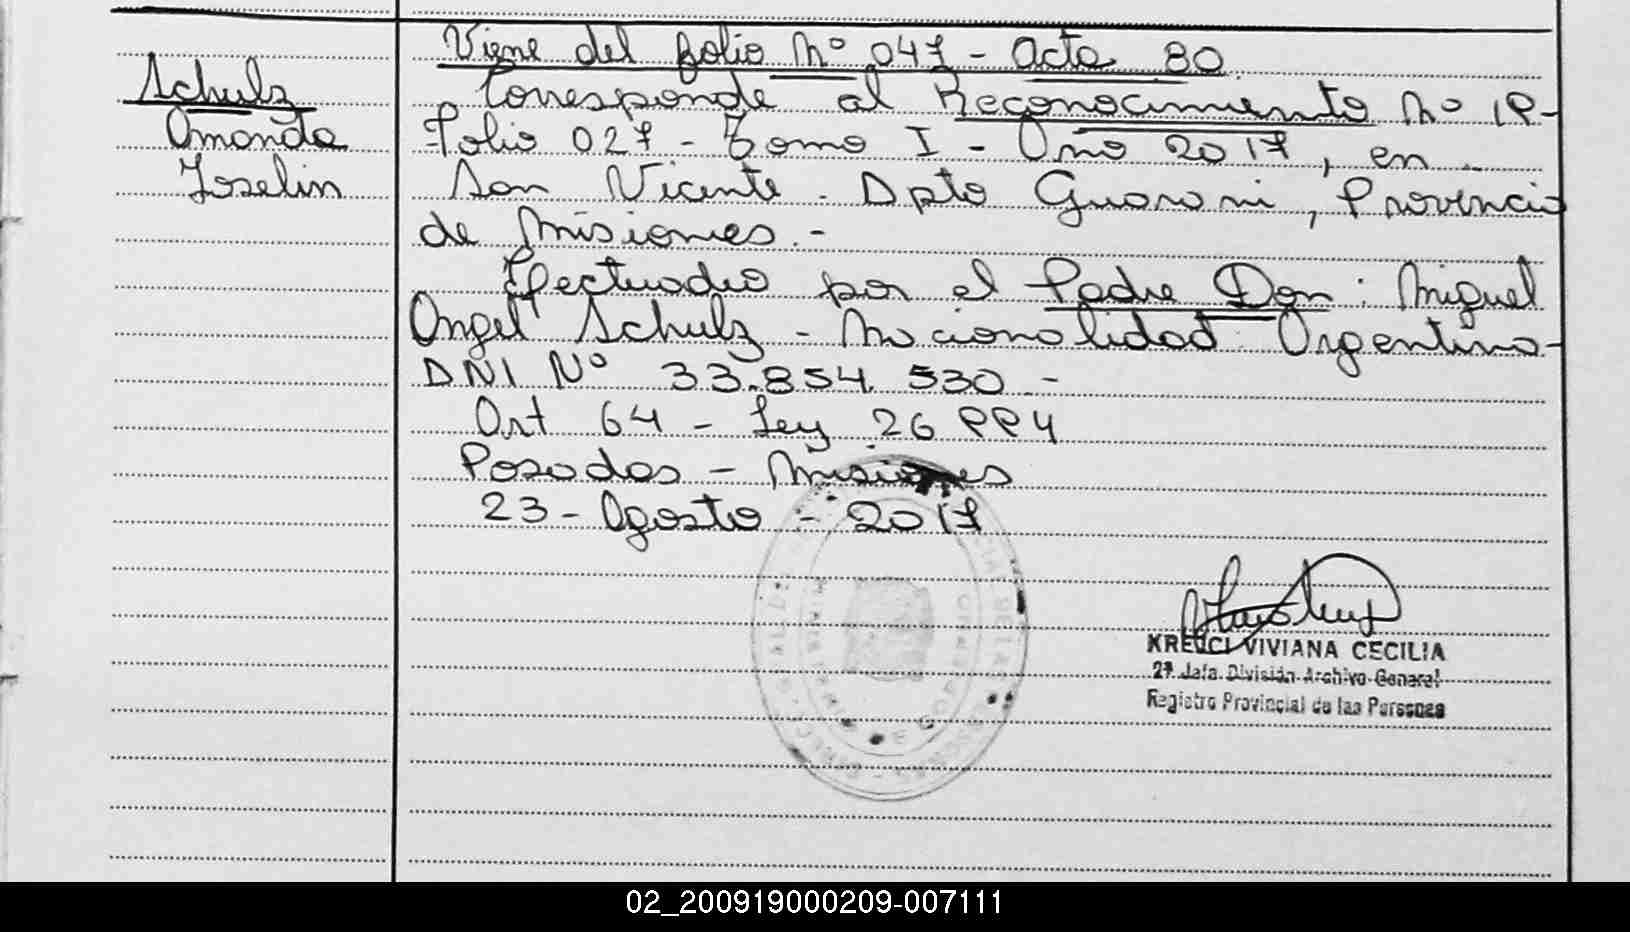 Viene del folio Nº 047 - Acta 80
Schulz
Corresponde al Reconocimiento Nº 19-
Amanda
Folio 027 - Tomo I - Año 2017, en
Joselin
San Vicente. Dpto Guarani, Provincia
de Misiones.-
Efectuado por el Padre Don: Miguel
Angel Schulz - Nacionalidad Argentina-
DNI Nº 33.854.530 -
Art 64 - Ley 26994
Posadas - Misiones
23 - Agosto - 2017
KREUCI VIVIANA CECILIA
2ª Jefa División Archivo General
Registro Provincial de las Personas
02_200919000209-007111